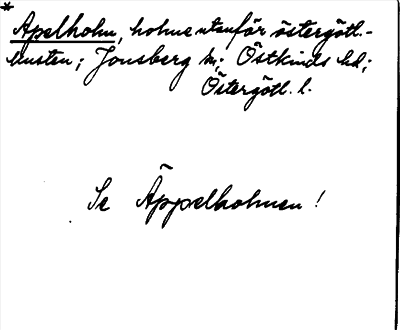 * Apelholm, holme utanför östergötl.-
kusten; Jonsberg sn; Östkinds hd;
Östergötl. l.
Se Äppelholmen!